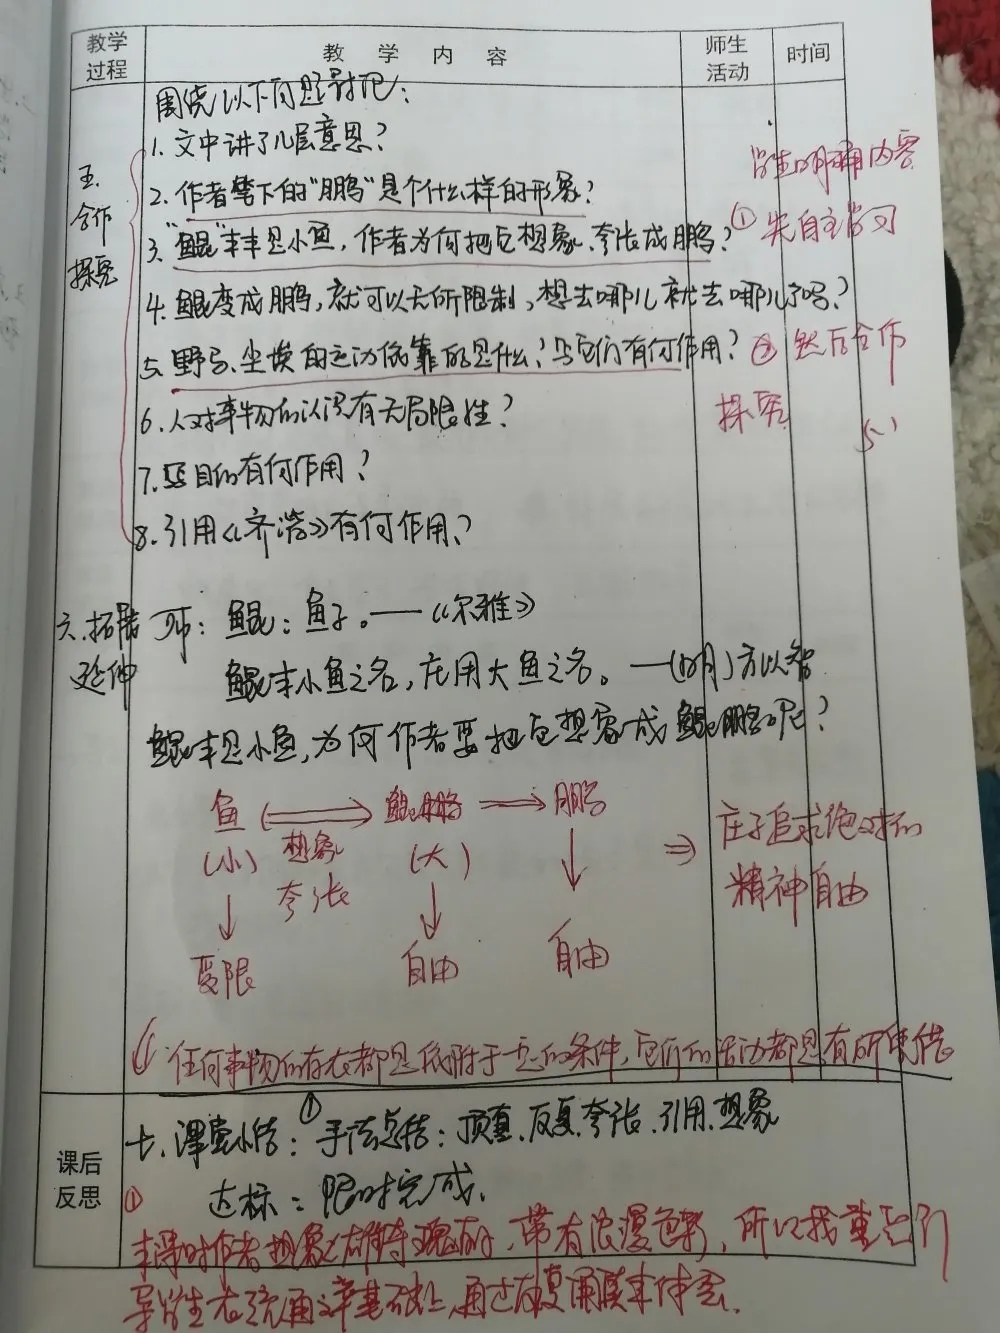 教学过程 教学内容 师生活动 时间
围绕以下问题讨论：
五、合作探究
1. 文中讲了几层意思？
2. 作者笔下的"鹏"是个什么样的形象？
3. "鲲"本是小鱼，作者为何把它想象、夸张成鹏？
4. 鲲变成鹏，就可以无所限制，想去哪儿就去哪儿了吗？
5. 野马、尘埃的运动依靠的是什么？写它们有何作用？
6. 人对事物的认识有无局限性？
7. 写目的有何作用？
8. 引用《齐谐》有何作用？
学生明确内容
① 先自主学习
② 然后合作
探究
5'
六、拓展延伸
师：鲲：鱼子。——《尔雅》
鲲本小鱼之名，庄用大鱼之名。——（明）方以智
鲲本是小鱼，为何作者要把它想象成鲲鹏呢？
鱼 鲲鹏 鹏
（小） 想象 （大）
夸张
受限 自由 自由
⇒ 庄子追求绝对的
精神自由
任何事物的存在都是依附于一定的条件，它们的活动都是有所凭借
课后反思
七、课堂小结：① 手法总结：顶真、反复、夸张、引用、想象
达标：限时完成。
① 本课时作者想象雄奇瑰丽，带有浪漫色彩，所以我重点引
导学生在疏通文章基础上，通过反复诵读来体会。